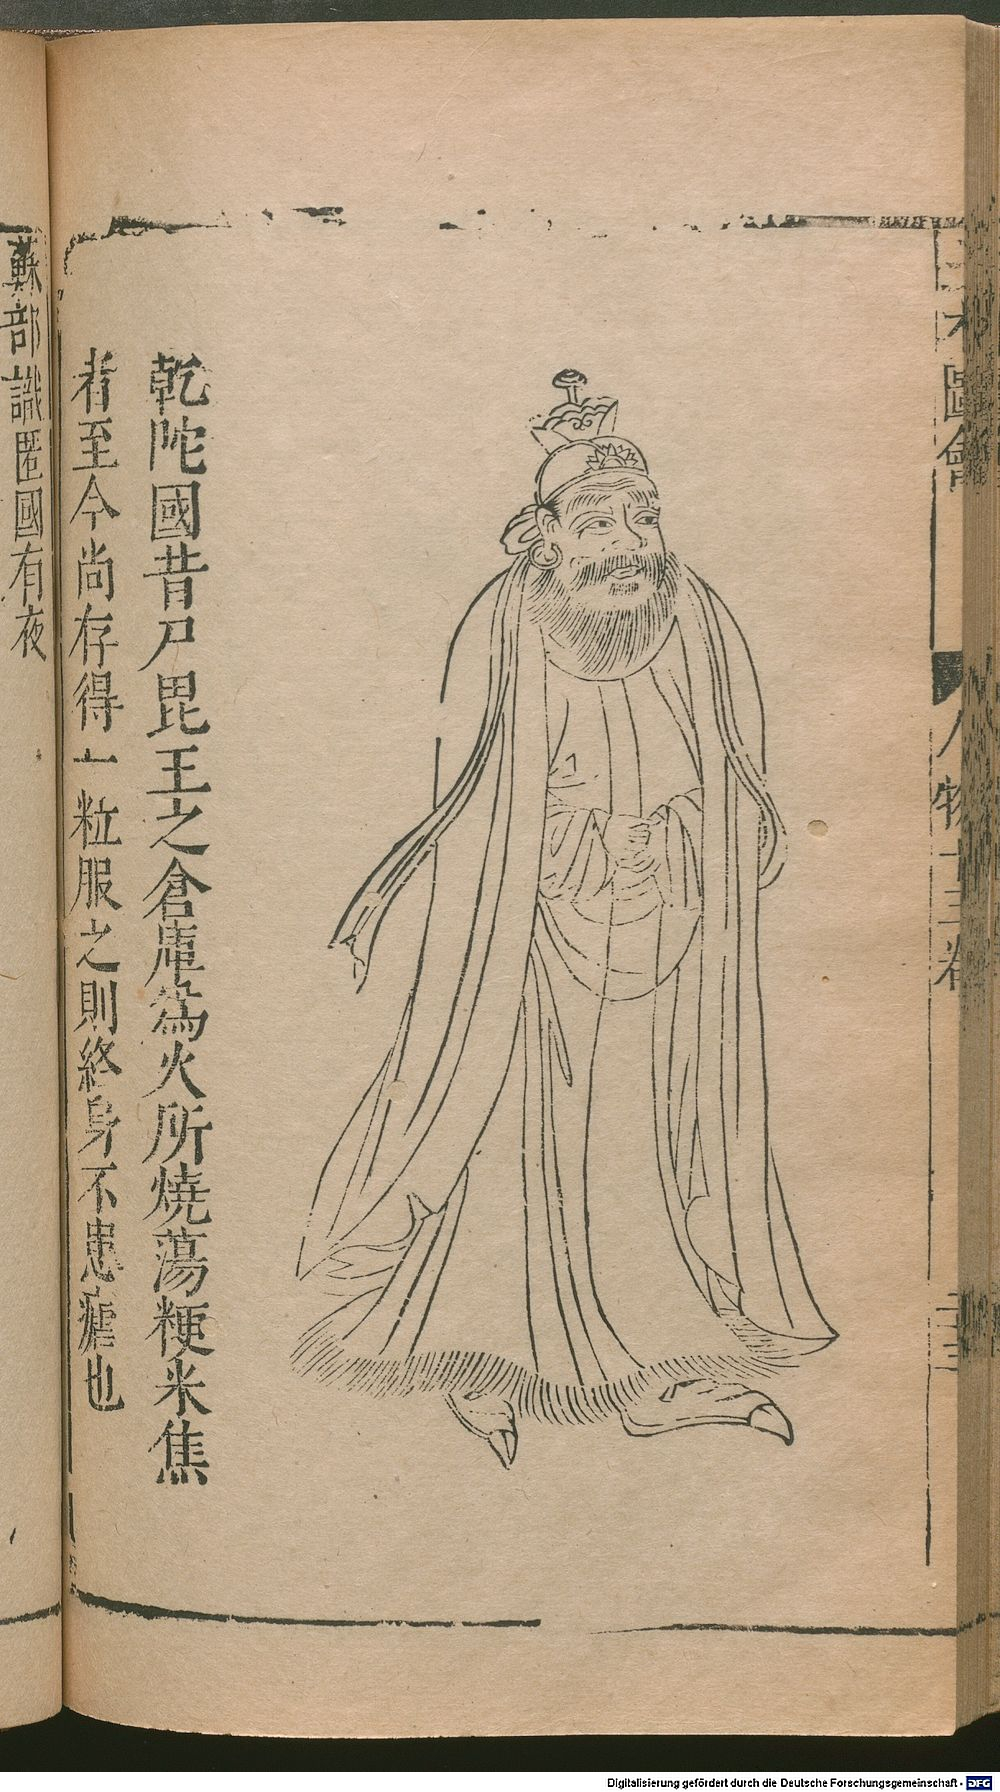 三才圖會
人物十三卷
乾陀國昔尸毘王之倉庫為火所燒蕩粳米焦
者至今尚存得一粒服之則終身不患瘧也
蘇部識匿國有夜
Digitalisierung gefördert durch die Deutsche Forschungsgemeinschaft - DFG